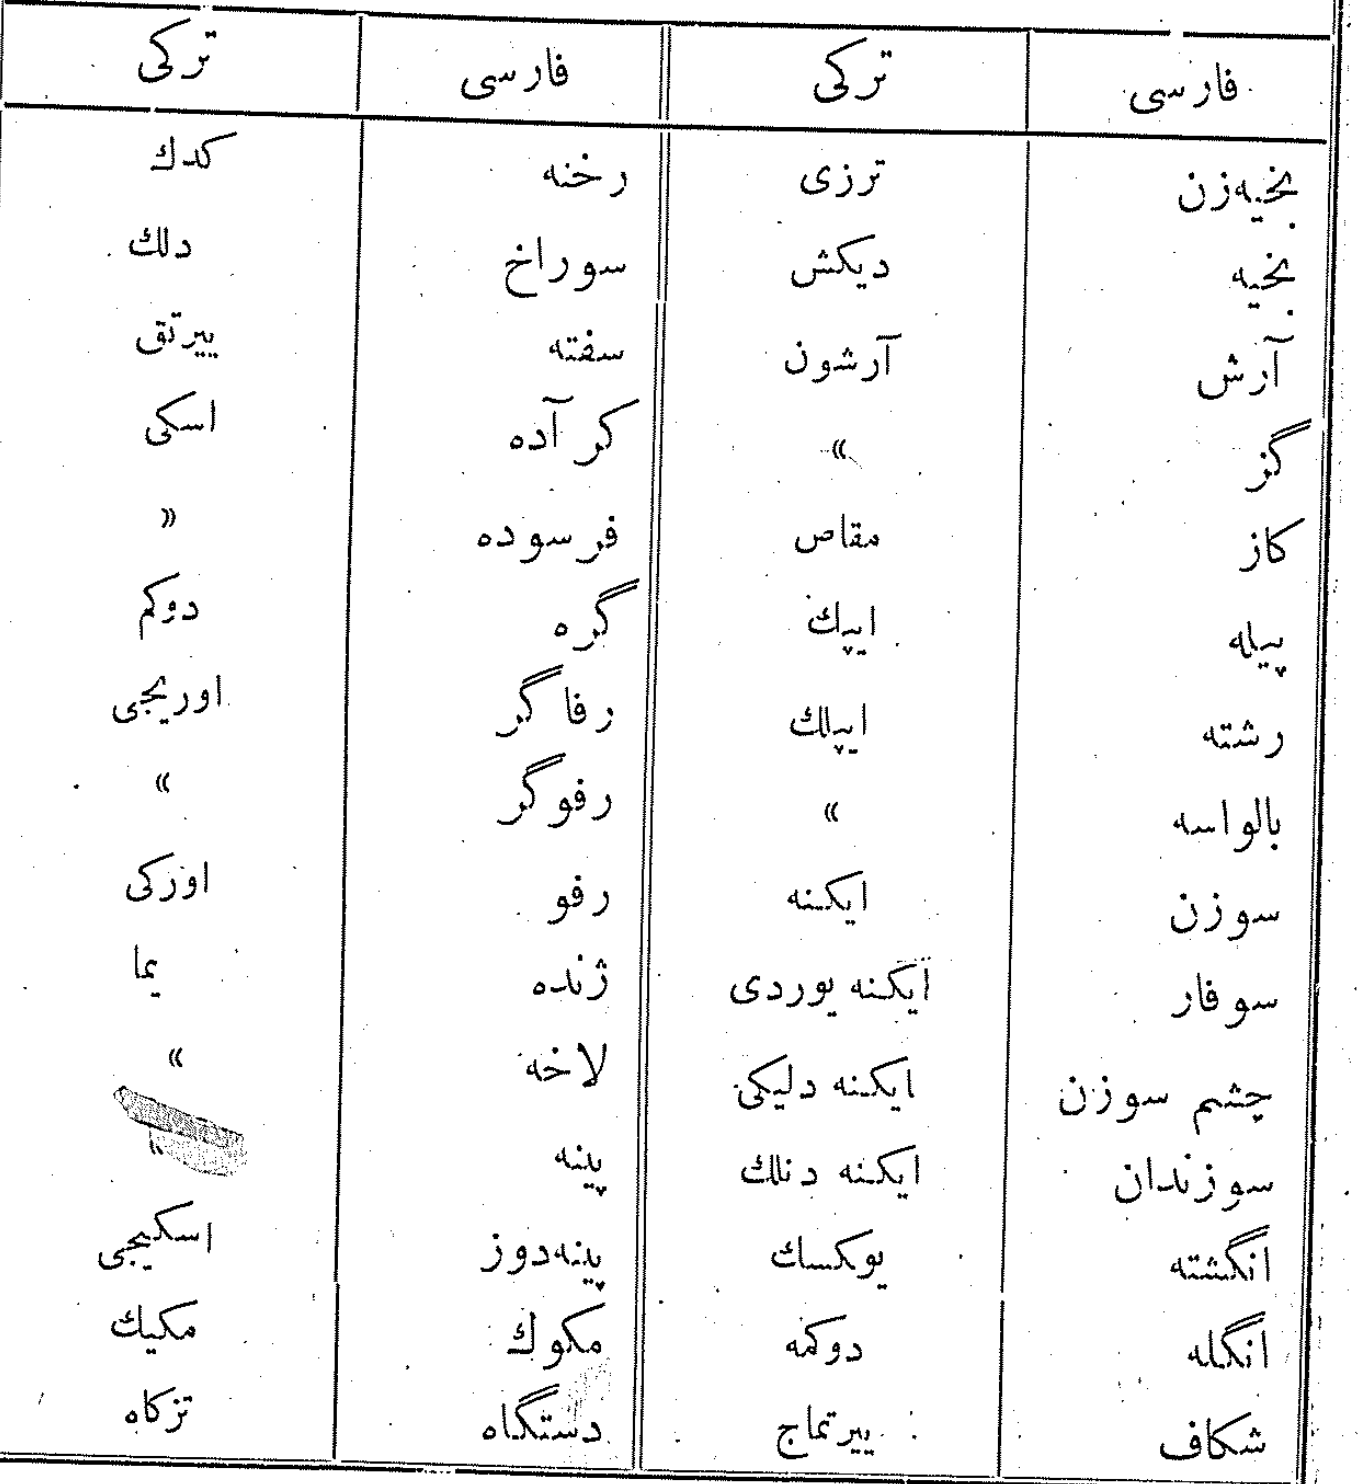 فارسی ترکی فارسی ترکی
بخیه‌زن ترزی رخنه کدك
بخیه دیکش سوراخ دلك
آرش آرشون سفته ییرتق
گز » کر آده اسکی
کاز مقاص فرسوده »
پیله ایپك گره دوکم
رشته ایپلك رفاگر اوریجی
بالواسه » رفوگر »
سوزن ایکنه رفو اوزکی
سوفار ایکنه یوردی ژنده یما
چشم سوزن ایکنه دلیکی لاخه »
سوزندان ایکنه دنلك پینه »
انگشته یوکسك پینه‌دوز اسکیجی
انگله دوکمه مکوك مکیك
شکاف ییرتماج دستگاه تزکاه